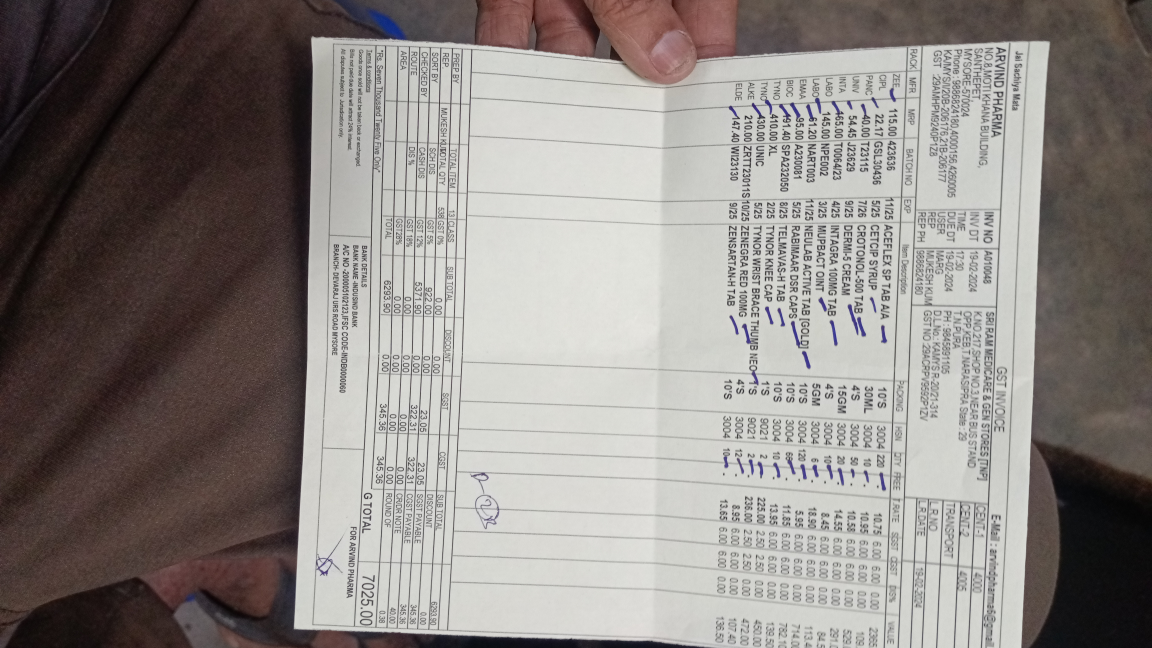 Jai Sachiya Mata
GST INVOICE
E-Mail : arvindpharma6@gmail.
ARVIND PHARMA
NO.8,MOTI KHANA BUILDING,
SANTHEPET,
MYSORE-570024
Phone : 9886824180,4000156,4260005
KA/MYS/I/20B-206176,21B-206177
GST :29AMHPM9240P1Z8
INV NO A010048
INV DT 19-02-2024
TIME 17:30
DUE DT 19-02-2024
USER MARG
REP MUKESH KUM
REP PH 9886824180
SRI RAM MEDICARE & GEN STORES [TNP]
K.NO.217,SHOP NO.3,NEAR BUS STAND
OPP KEB,T.NARASIPRA State : 29
T.N.PURA
PH : 9845891105
D.L.No.: KAMYS R-20/21-314
GST NO :29ACRPV9592P1ZV
CENT-1 4000
CENT-2 4005
TRANSPORT
L.R.NO
L.R.DATE 19-02-2024
RACK MFR MRP BATCH NO EXP Item Description PACKING HSN QTY FREE T.RATE SGST CGST DIS% VALUE
ZEE 115.00 423636 11/25 ACEFLEX SP TAB A/A 10'S 3004 220 - 10.75 6.00 6.00 0.00 2365
CIPL 22.17 GSL30436 5/25 CETCIP SYRUP 30ML 3004 10 - 10.95 6.00 6.00 0.00 109.
PANC 40.00 T23115 7/26 CROTONOL-500 TAB 4'S 3004 50 - 10.58 6.00 6.00 0.00 529.
UNIV 54.45 J23629 9/25 DERMI-5 CREAM 15GM 3004 20 - 14.55 6.00 6.00 0.00 291.
INTA 465.00 T0064/23 4/25 INTAGRA 100MG TAB 4'S 3004 10 - 8.45 6.00 6.00 0.00 84.5
LABO 145.00 NPE002 3/25 MUPBACT OINT 5GM 3004 6 - 18.90 6.00 6.00 0.00 113.4
LABO 61.20 NART003 11/25 NEULAB ACTIVE TAB [GOLD] 10'S 3004 120 - 5.95 6.00 6.00 0.00 714.0
EMAA 95.00 A230081 5/25 RABIMAAR DSR CAPS 10'S 3004 66 - 11.85 6.00 6.00 0.00 782.1
BIOC 91.40 SPA232050 8/25 TELMAVAS-H TAB 10'S 3004 10 - 13.95 6.00 6.00 0.00 139.5
TYNO 410.00 XL 2/25 TYNOR KNEE CAP 1'S 9021 2 - 225.00 2.50 2.50 0.00 450.00
TYNO 430.00 UNIC 5/25 TYNOR WRIST BRACE THUMB NEO 1'S 9021 2 - 236.00 2.50 2.50 0.00 472.00
ALKE 210.00 ZRTT23011S 10/25 ZENEGRA RED 100MG 4'S 3004 12 - 8.95 6.00 6.00 0.00 107.40
ELDE 147.40 WI23130 9/25 ZENSARTAN-H TAB 10'S 3004 10 - 13.65 6.00 6.00 0.00 136.50
PREP BY TOTAL ITEM 13 CLASS SUB TOTAL DISCOUNT SGST CGST SUB TOTAL 6293.90
REP MUKESH KUM TOTAL QTY 538 GST 0% 0.00 0.00 DISCOUNT 0.00
SORT BY SCH DIS GST 5% 922.00 0.00 23.05 23.05 SGST PAYABLE 345.36
CHECKED BY CASH DIS GST 12% 5371.90 0.00 322.31 322.31 CGST PAYABLE 345.36
ROUTE DIS % GST 18% 0.00 0.00 0.00 0.00 CR/DR NOTE 40.00
AREA GST28% 0.00 0.00 0.00 0.00 ROUND OF 0.38
TOTAL 6293.90 0.00 345.36 345.36
*Rs. Seven Thousand Twenty Five Only*
G TOTAL 7025.00
Terms & conditions
Goods once sold will not be taken back or exchanged
Bills not paid due date will attract 24% interest.
All disputes subject to Jurisdiction only.
BANK DETAILS
BANK NAME -INDUSIND BANK
A/C NO -200005102123,IFSC CODE-INDB0000060
BRANCH- DEVARAJ URS ROAD MYSORE
FOR ARVIND PHARMA